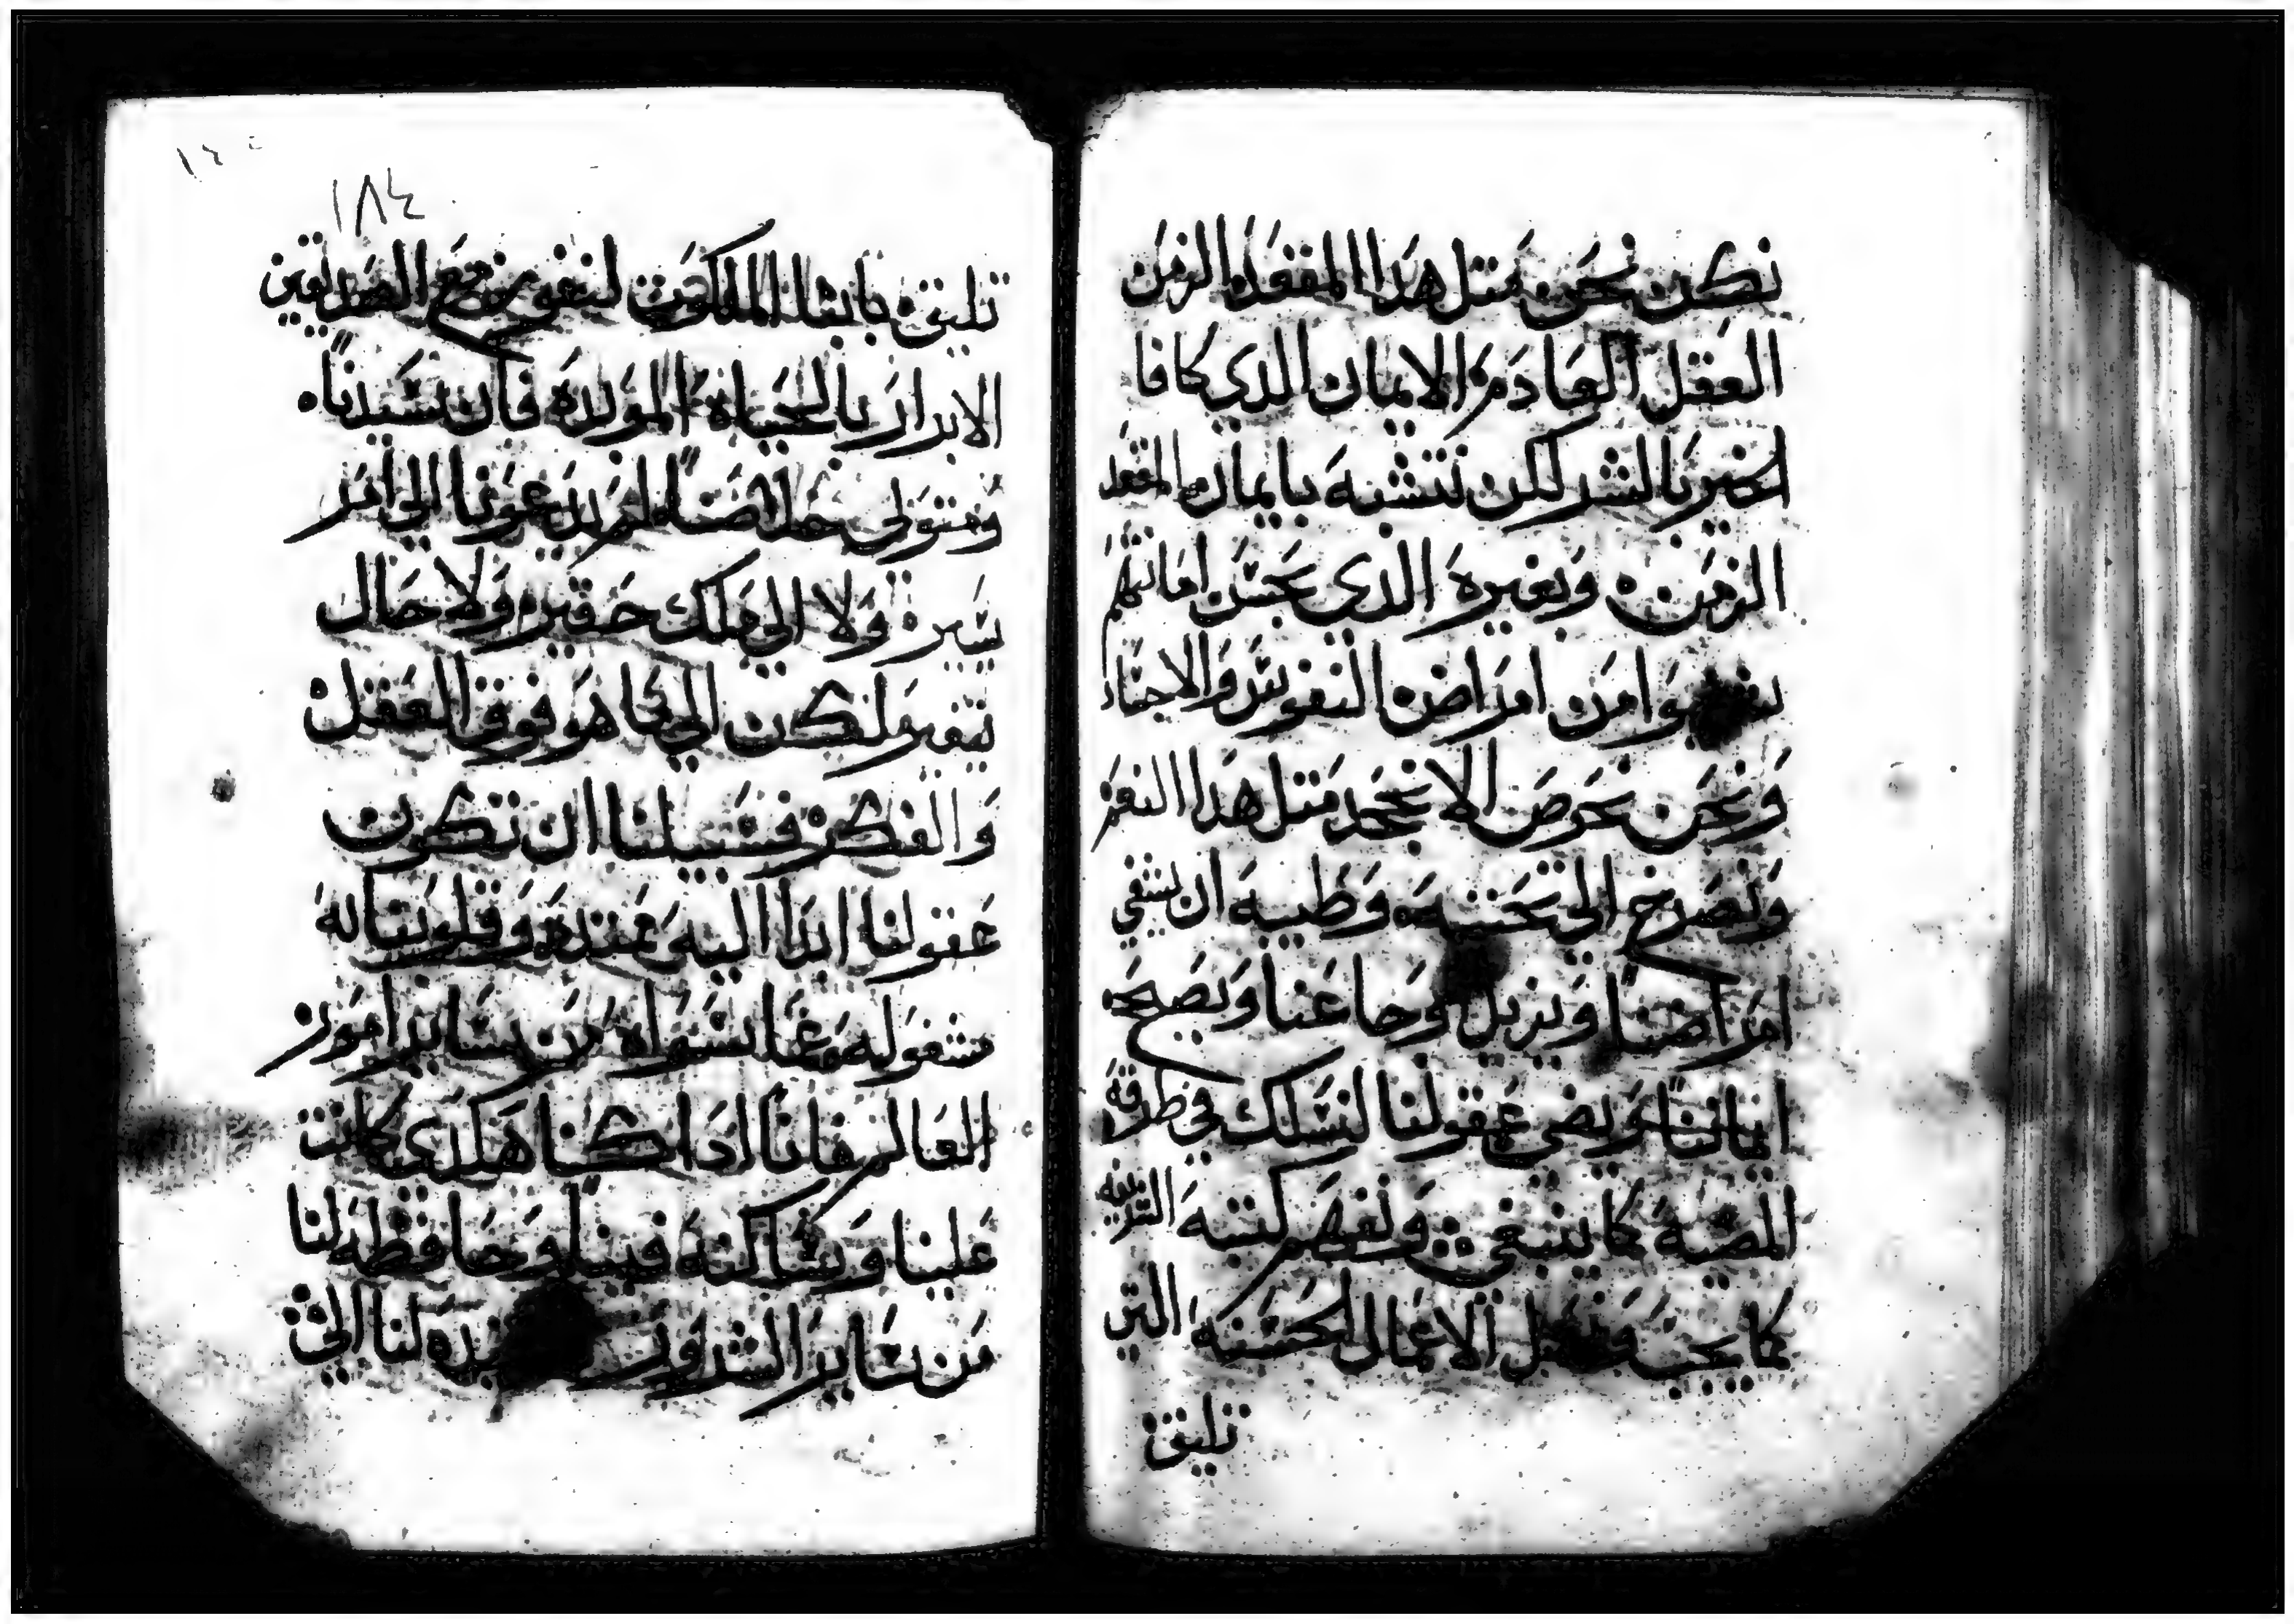 نكون نحن مثل هذا المقعد الزمن
العقل العادم الايمان الذي كافا
الخير بالشر لكن نتشبه بايمان المقعد
الزمن وبغيره الذي بحسن امانتهم
امن امراض النفوس والاجساد
ونحن نحرص الا نجحد مثل هذا النعم
ونصرخ الي تحننه وطيبه ان يشفي
امراضنا ويزيل عنا ويصحح
ايماننا ويضي عقولنا لنسلك في طرقه
المضيه كما ينبغي ونفهم كتبه
كما يجب الاعمال الحسنه التي
تليق
١٨٤
تليق بابنا الملكوت لنفوز مع الصديقين
الابرار بالحياة الموبدة فان سيدنا
ومتولي خلاصنا لم يدعونا الي امر
يسير ولا الي ملك حقير ولا حال
لكن الي ما هو فوق العقل
والفكر فسبيلنا ان تكون
عقولنا ابدا اليه ممتدة وقلوبنا له
مشغوله عما سواه من ساير امور
العالم فاننا اذا كنا هكذي كانت
علينا وساكنة فينا وحافظه لنا
من ساير الشرور لنا الي